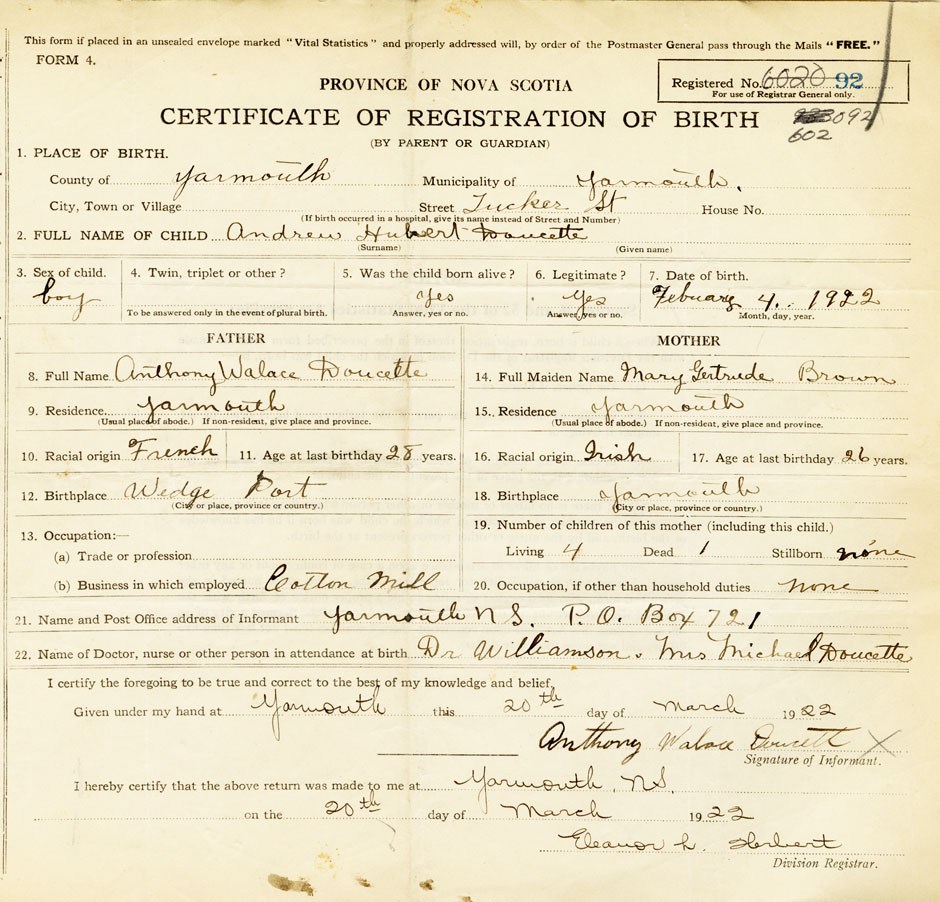 This form if placed in an unsealed envelope marked "Vital Statistics" and properly addressed will, by order of the Postmaster General pass through the Mails "FREE."
FORM 4.
PROVINCE OF NOVA SCOTIA
Registered No. 6020 92
For use of Registrar General only.
CERTIFICATE OF REGISTRATION OF BIRTH
3092
602
(BY PARENT OR GUARDIAN)
1. PLACE OF BIRTH.
County of Yarmouth Municipality of Yarmouth.
City, Town or Village Street Tucker St House No.
(If birth occurred in a hospital, give its name instead of Street and Number)
2. FULL NAME OF CHILD Andrew Hubert Doucette
(Surname) (Given name)
3. Sex of child. 4. Twin, triplet or other? 5. Was the child born alive? 6. Legitimate? 7. Date of birth.
boy Yes Yes Febuary 4. 1922
To be answered only in the event of plural birth. Answer, yes or no. Answer, yes or no. Month, day, year.
FATHER
8. Full Name Anthony Walace Doucette
9. Residence Yarmouth
(Usual place of abode.) If non-resident, give place and province.
10. Racial origin French 11. Age at last birthday 28 years.
12. Birthplace Wedge Port
(City or place, province or country.)
13. Occupation:—
(a) Trade or profession
(b) Business in which employed Cotton Mill
MOTHER
14. Full Maiden Name Mary Gertrude Brown
15. Residence Yarmouth
(Usual place of abode.) If non-resident, give place and province.
16. Racial origin Irish 17. Age at last birthday 26 years.
18. Birthplace Yarmouth
(City or place, province or country.)
19. Number of children of this mother (including this child.)
Living 4 Dead 1 Stillborn none
20. Occupation, if other than household duties none
21. Name and Post Office address of Informant Yarmouth N S. P.O. Box 721
22. Name of Doctor, nurse or other person in attendance at birth Dr Williamson. Mrs Michael Doucette
I certify the foregoing to be true and correct to the best of my knowledge and belief,
Given under my hand at Yarmouth this 20th day of March 1922
Anthony Walace Doucett X
Signature of Informant.
I hereby certify that the above return was made to me at Yarmouth, N.S.
on the 20th day of March 1922
Eleanor L. Herbert
Division Registrar.